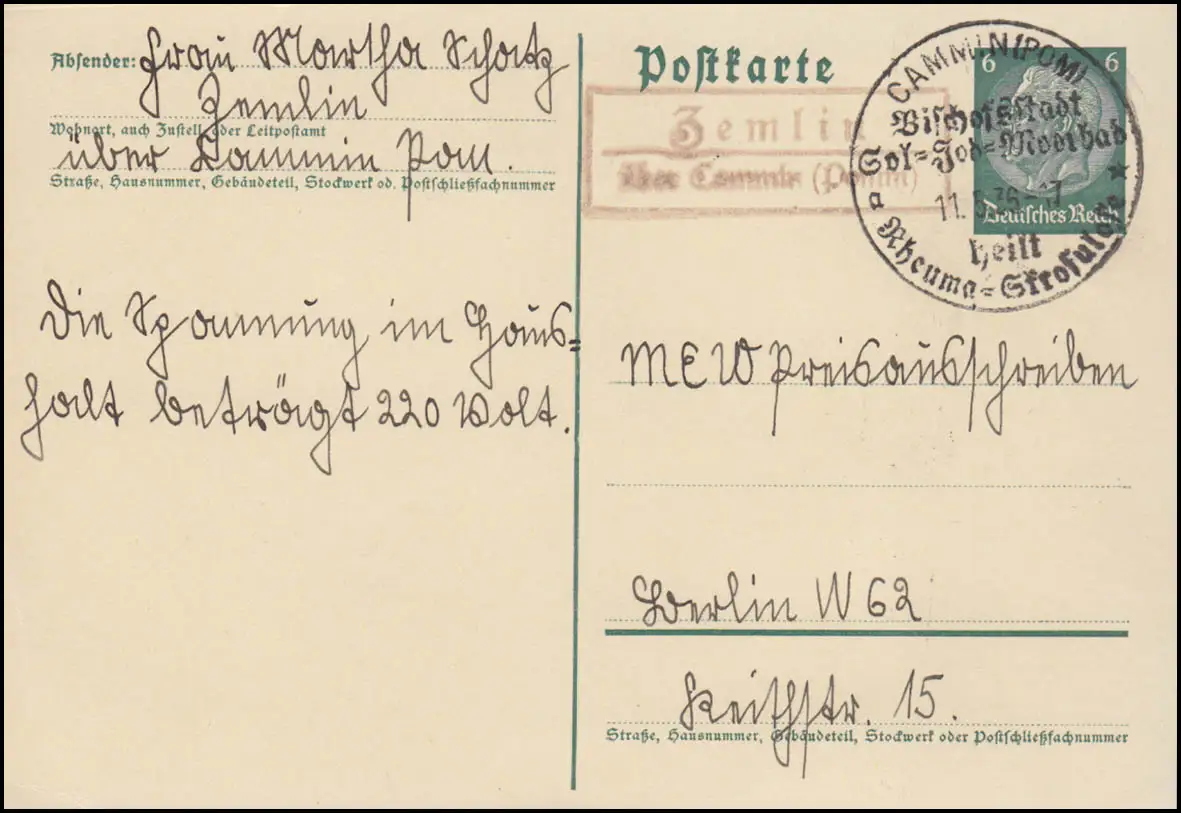 Absender: Frau Martha Schatz
Zemlin
Wohnort, auch Zustell- oder Leitpostamt
über Cammin Pom.
Straße, Hausnummer, Gebäudeteil, Stockwerk od. Postschließfachnummer
Die Spannung im Haus=
halt beträgt 220 Volt.
Postkarte
Zemlin
über Cammin (Pomm)
CAMMIN (POM)
Bischofsstadt
Sol=Jod=Moorbad
a
11. 5.36-17
heilt
Rheuma=Skrofulose
6 6
Deutsches Reich
MEW Preisausschreiben
Berlin W 62
Keithstr. 15.
Straße, Hausnummer, Gebäudeteil, Stockwerk oder Postschließfachnummer